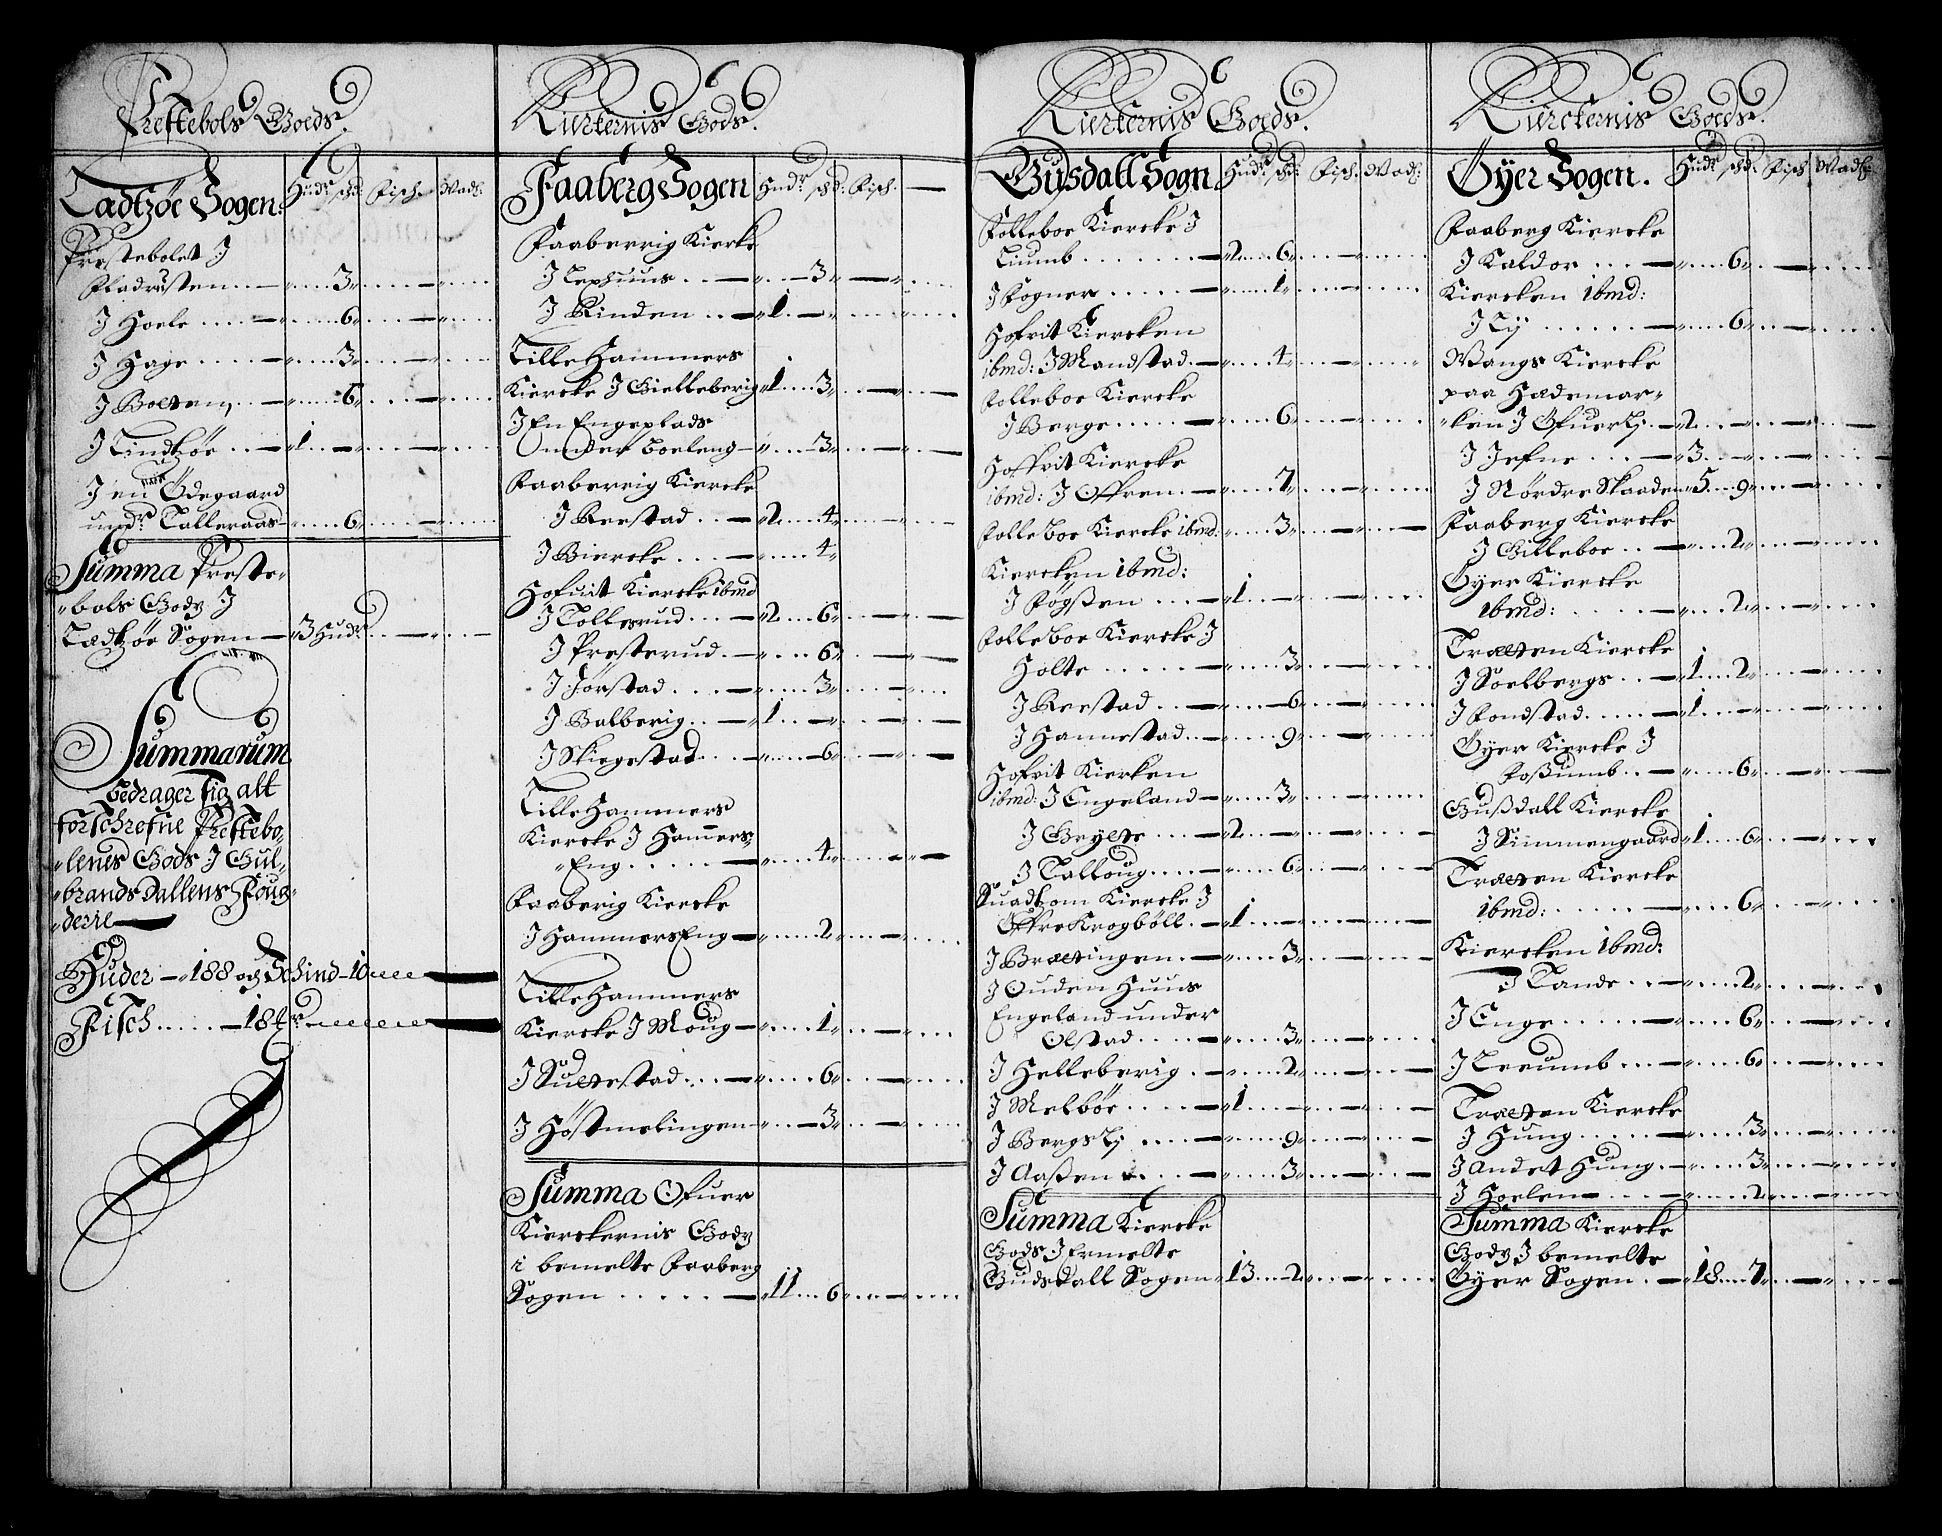 Prestebols Goeds.
Ladtzøe Sogen: Hudr shd. Fisch. Wadh.
Prestebolet J
Fladrusten 3
J Hoele 6
J Hage 3
J Bolten 6
J Lindtzøe 1
J en Ødegaard
undr Talleraas 6
Summa Preste-
bols Godz J
Ladtzøe Sogen 3 Hudr
Summarum
bedrager sig alt
forschrefne Prestebo
lenes Gods J Gul-
brands Dallens Foug-
derie
Huder 188 och Schind 10
Fisch 18
Kierkernis Gods.
Faaberg Sogen Hudr shd: Fisch.
Faaberrig Kierke
J Lephuus 3
J Rinden 1
LilleHammers
Kiercke J Gielleberig 1 3
J En Engeplads
Under Boeleng 3
Faaberrig Kiercke
J Reestad 2 4
J Biercke 4
Hofuit Kiercke ibmd
J Tollesrud 2 6
J Presterud 6
J Jørstad 3
J Balberig 1
J Skiegestad 6
LilleHammers
Kiercke J Hamers
Eng 4
Faaberig Kiercke
J HammersEng 2
LilleHammers
Kiercke J Moug 1
J Sultestad 6
J Høstmelingen 3
Summa Ofuer
Kierckernis Godz
i bemelte Faaberg
Sogen 11 6
Kierkernis Goeds.
Gusdall Sogn Hudr shd: Fisch. Wadh:
Folleboe Kiercke J
Liumb 2 6
J Fogner 1
Hofvit Kiercken
ibmd: J Mandstad 4
Folleboe Kiercke
J Berge 6
Hoffvit Kiercke
ibmd: J Offren 7
Folleboe Kiercke ibmd. 3
Kiercken ibmd:
J Føgßen 1
Folleboe Kiercke J
Holte 3
J Reestad 6
J Hannestad 9
Hofvit Kierken
ibmd: J Engeland 3
J Grylte 2
J Talloug 6
Suadtzom Kiercke J
Øffre Krogbøll 1
J Brættingen 3
J Ouden Huus
Engeland under
Olstad 3
J Helleberig 2
J Melbøe 1
J Bergs Lj 9
J Aaßen 3
Summa Kiercke
Gods J Ermelte
Gudsdall Sogen 13 2
Kierckernis Goeds.
Øyer Sogen. Hudr shd. Fisch Wadh
Faaberg Kiercke
J Kaldor 6
Kiercken ibmd:
J Lij 6
Wangs Kiercke
paa Hædemar-
ken J Ofuerlj 2
J Jefne 3
J Nørdre Skaaden 5 9
Faaberg Kiercke
J Gilleboe 2
Øyer Kiercke
ibmd: 2
Trætten Kiercke
J Soelbergs 1 2
J Fondstad 1
Øyer Kiercke J
Foßumb 6
Gußdall Kiercke
J Simmengaard 1 6
Trætten Kiercke
ibmd: 6
Kiercken ibmd:
J Lande 2
J Enge 6
J Leeumb 6
Trætten Kiercke
J Hung 3
J Andet Hung 3
J Hoelen 2
Summa Kiercke
Godz J bemelte
Øyer Sogen 18 7